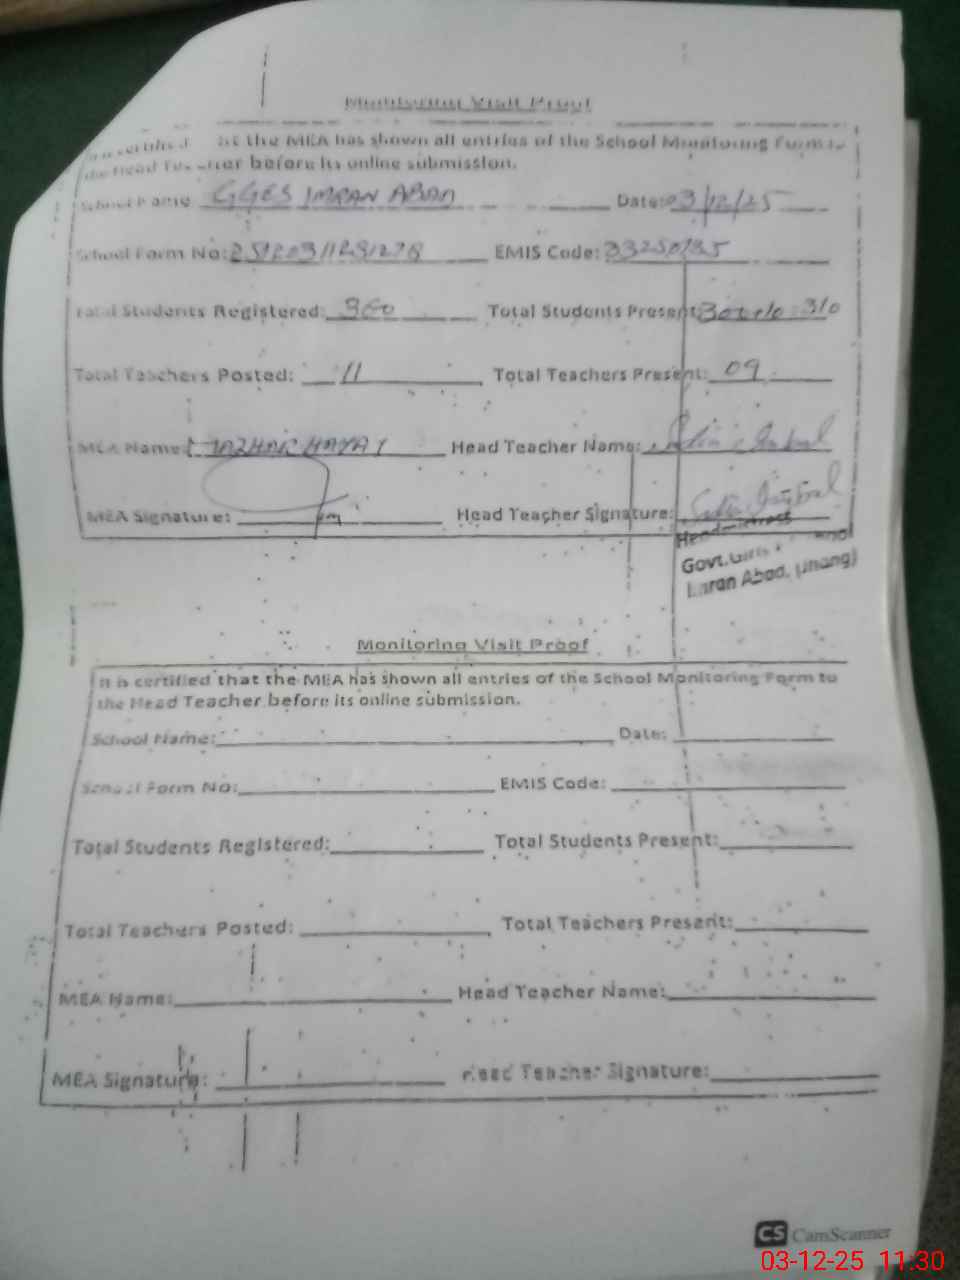 Monitoring Visit Proof
the MEA has shown all entries of the School Monitoring Form to
the Head Teacher before its online submission.
School Name GGES IMRAN ABAD Date: 03/12/25
School Form No: EMIS Code: 33250135
Total Students Registered: 360 Total Students Present: 310
Total Teachers Posted: 11 Total Teachers Present: 09
MEA Name: MAZHAR HAYAT Head Teacher Name:
MEA Signature: Head Teacher Signature:
Headmistress
Govt. Girls
Imran Abad, (Jhang)
Monitoring Visit Proof
It is certified that the MEA has shown all entries of the School Monitoring Form to
the Head Teacher before its online submission.
School Name: Date:
School Form No: EMIS Code:
Total Students Registered: Total Students Present:
Total Teachers Posted: Total Teachers Present:
MEA Name: Head Teacher Name:
MEA Signature: Head Teacher Signature:
CS CamScanner
03-12-25 11:30